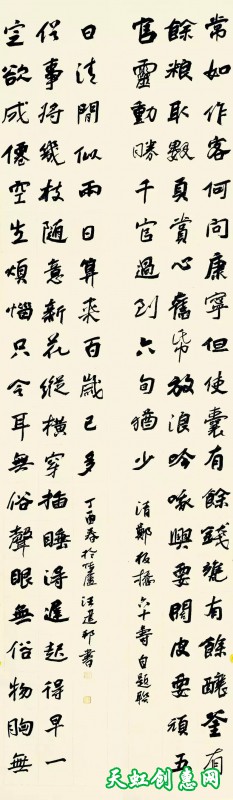 常如作客何问康寧但使囊有餘錢甕有餘釀釜有
餘粮取數頁賞心舊帋放浪吟哦興要闊皮要頑五
官靈動勝千官過到六旬猶少
清鄭板橋六十壽自題聯
定欲成僊空生煩惱只令耳無俗聲眼無俗物胸無
俗事將幾枝隨意新花縱橫穿插睡得遲起得早一
日清閒似兩日算來百歲已多
丁酉春於廬汪邦書
天虹创意网